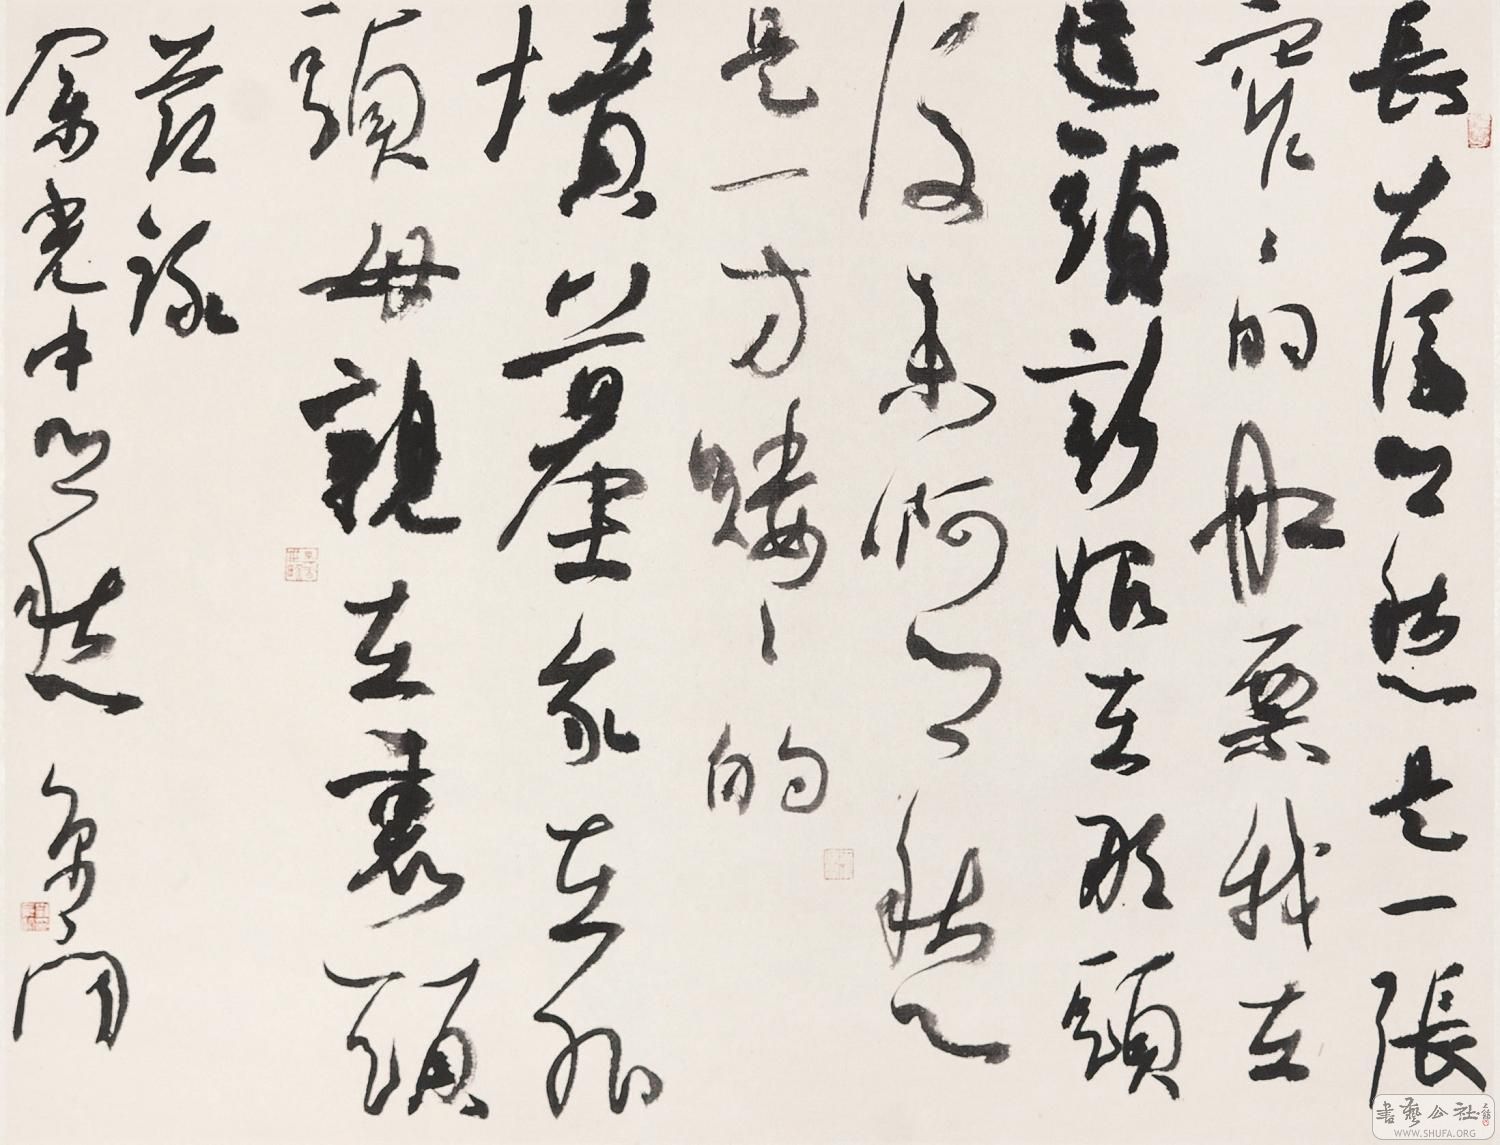 長大後鄉愁是一張
窄〻的船票我在
這頭新娘在那頭
後來啊鄉愁
是一方矮〻的
墳墓我在外
頭母親在裏頭
節錄
余光中鄉愁
書藝公社
WWW.SHUFA.ORG